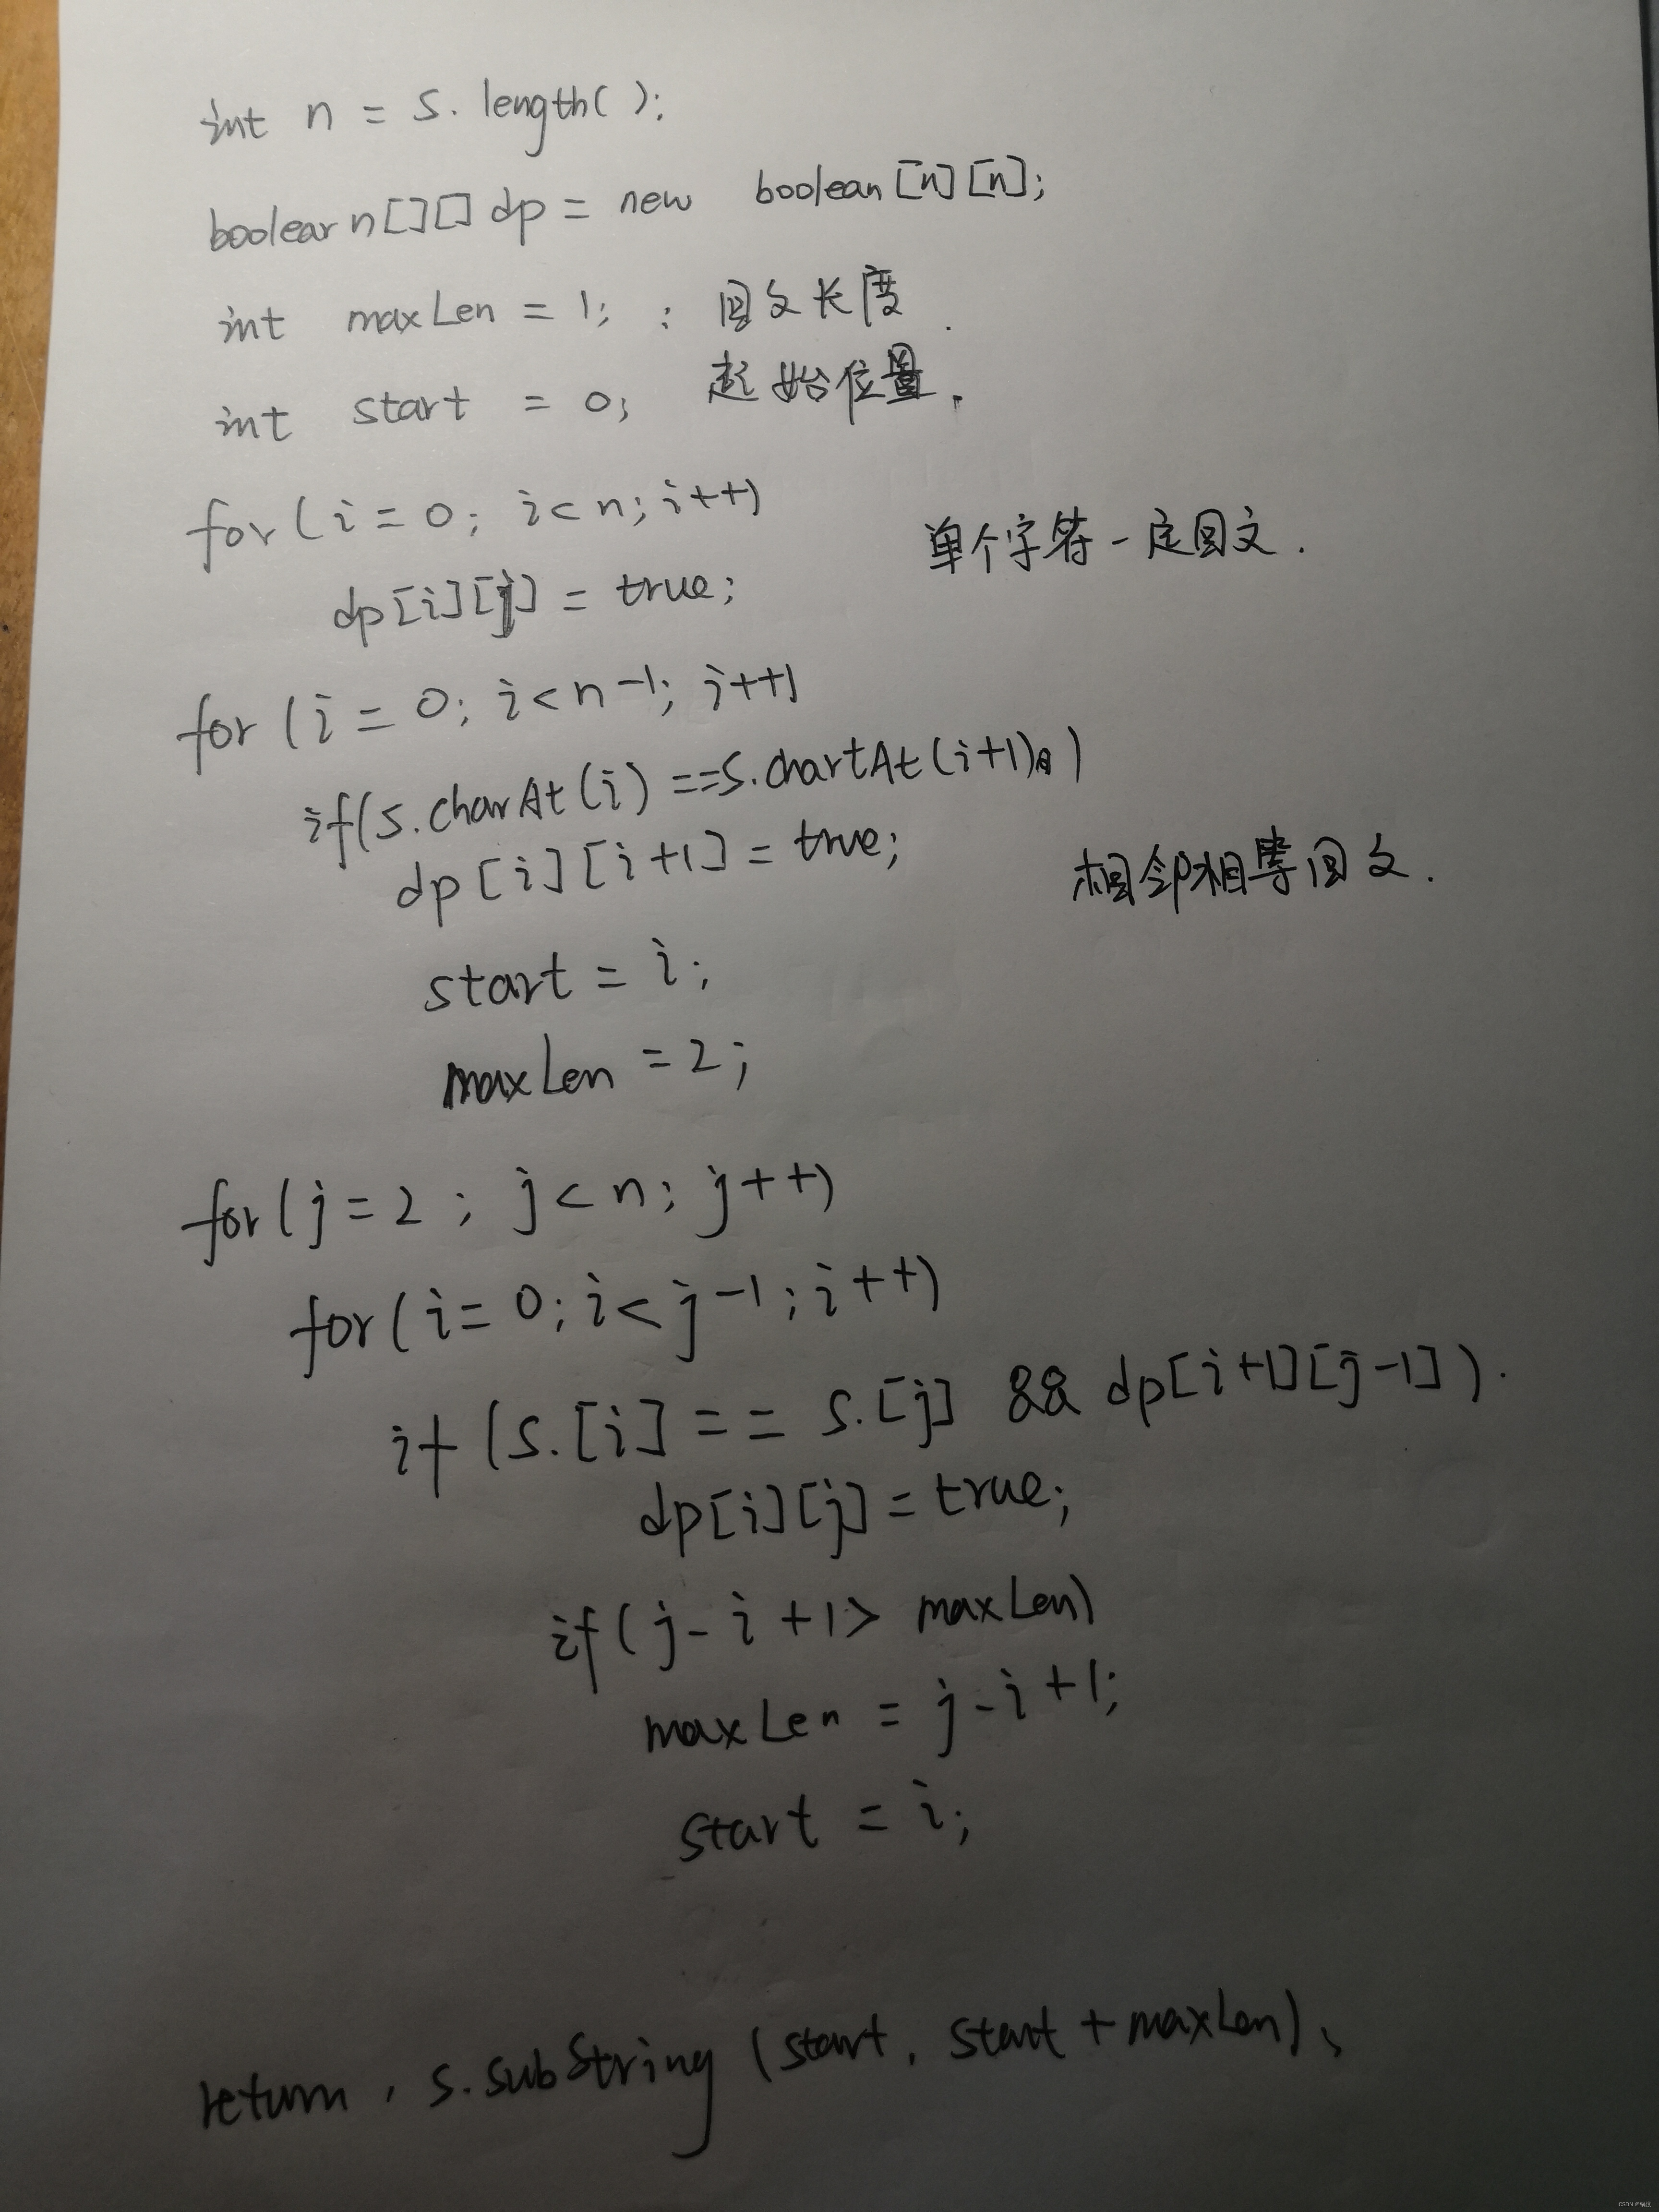 int n = s. length( );
boolearn[][] dp = new boolean[n][n];
int maxLen = 1; : 回文长度.
int start = 0; 起始位置.
for (i = 0; i < n; i++)
单个字符一定回文.
dp[i][j] = true;
for (i = 0; i < n-1; i++)
if(s.charAt(i) ==s.chartAt(i+1))
dp[i][i+1] = true;
相邻相等回文.
start = i;
maxLen = 2;
for(j=2; j<n; j++)
for(i=0; i<j-1; i++)
if (s.[i] == s.[j] && dp[i+1][j-1]).
dp[i][j] = true;
if(j-i+1> maxLen)
maxLen = j-i+1;
start = i;
return, s.subString (start, start + maxLen)、
CSDN